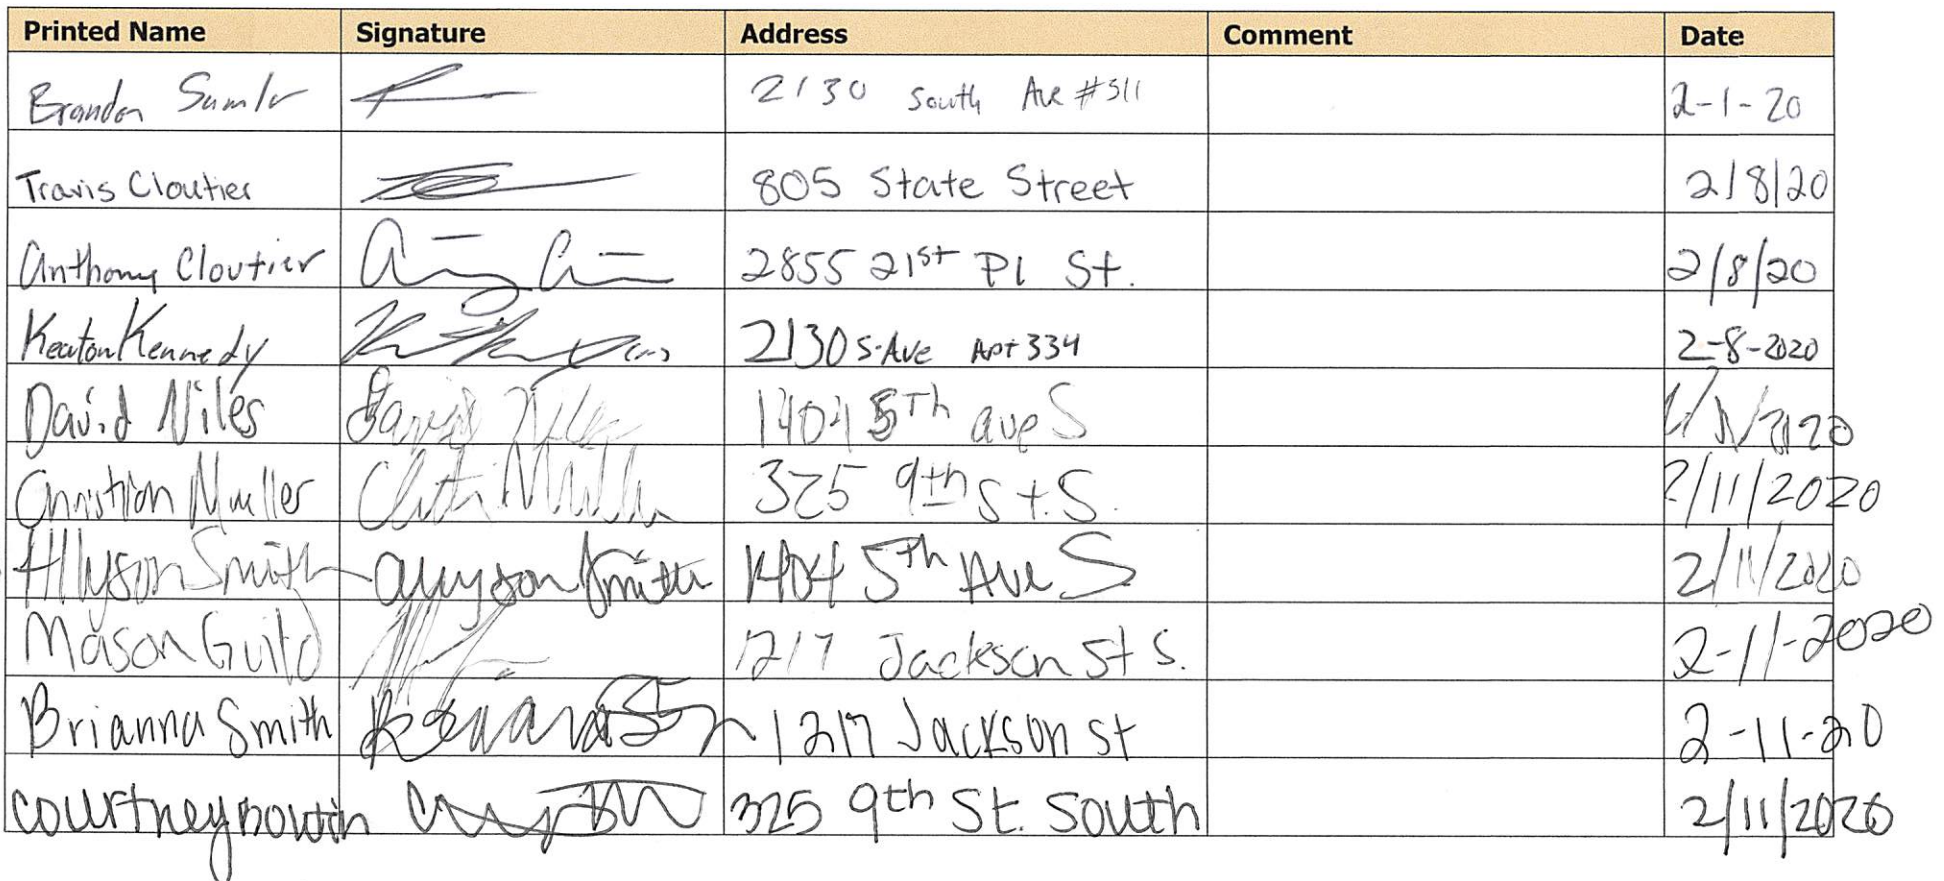 Printed Name Signature Address Comment Date
Brandon 2130 South Ave #311 2-1-20
Travis Cloutier 805 State Street 2/8/20
Anthony Cloutier 2855 21st Pl St. 2/8/20
Keaton Kennedy 2130 S. Ave Apt 334 2-8-2020
David Niles David Niles 1404 5Th ave S
Christian Mueller 325 9th St. S. 2/11/2020
Allyson Smith Allyson Smith 1404 5th Ave S 2/11/2020
Mason Guild 1217 Jackson St S. 2-11-2020
Brianna Smith 1217 Jackson St 2-11-20
courtney 325 9th St. South 2/11/2020